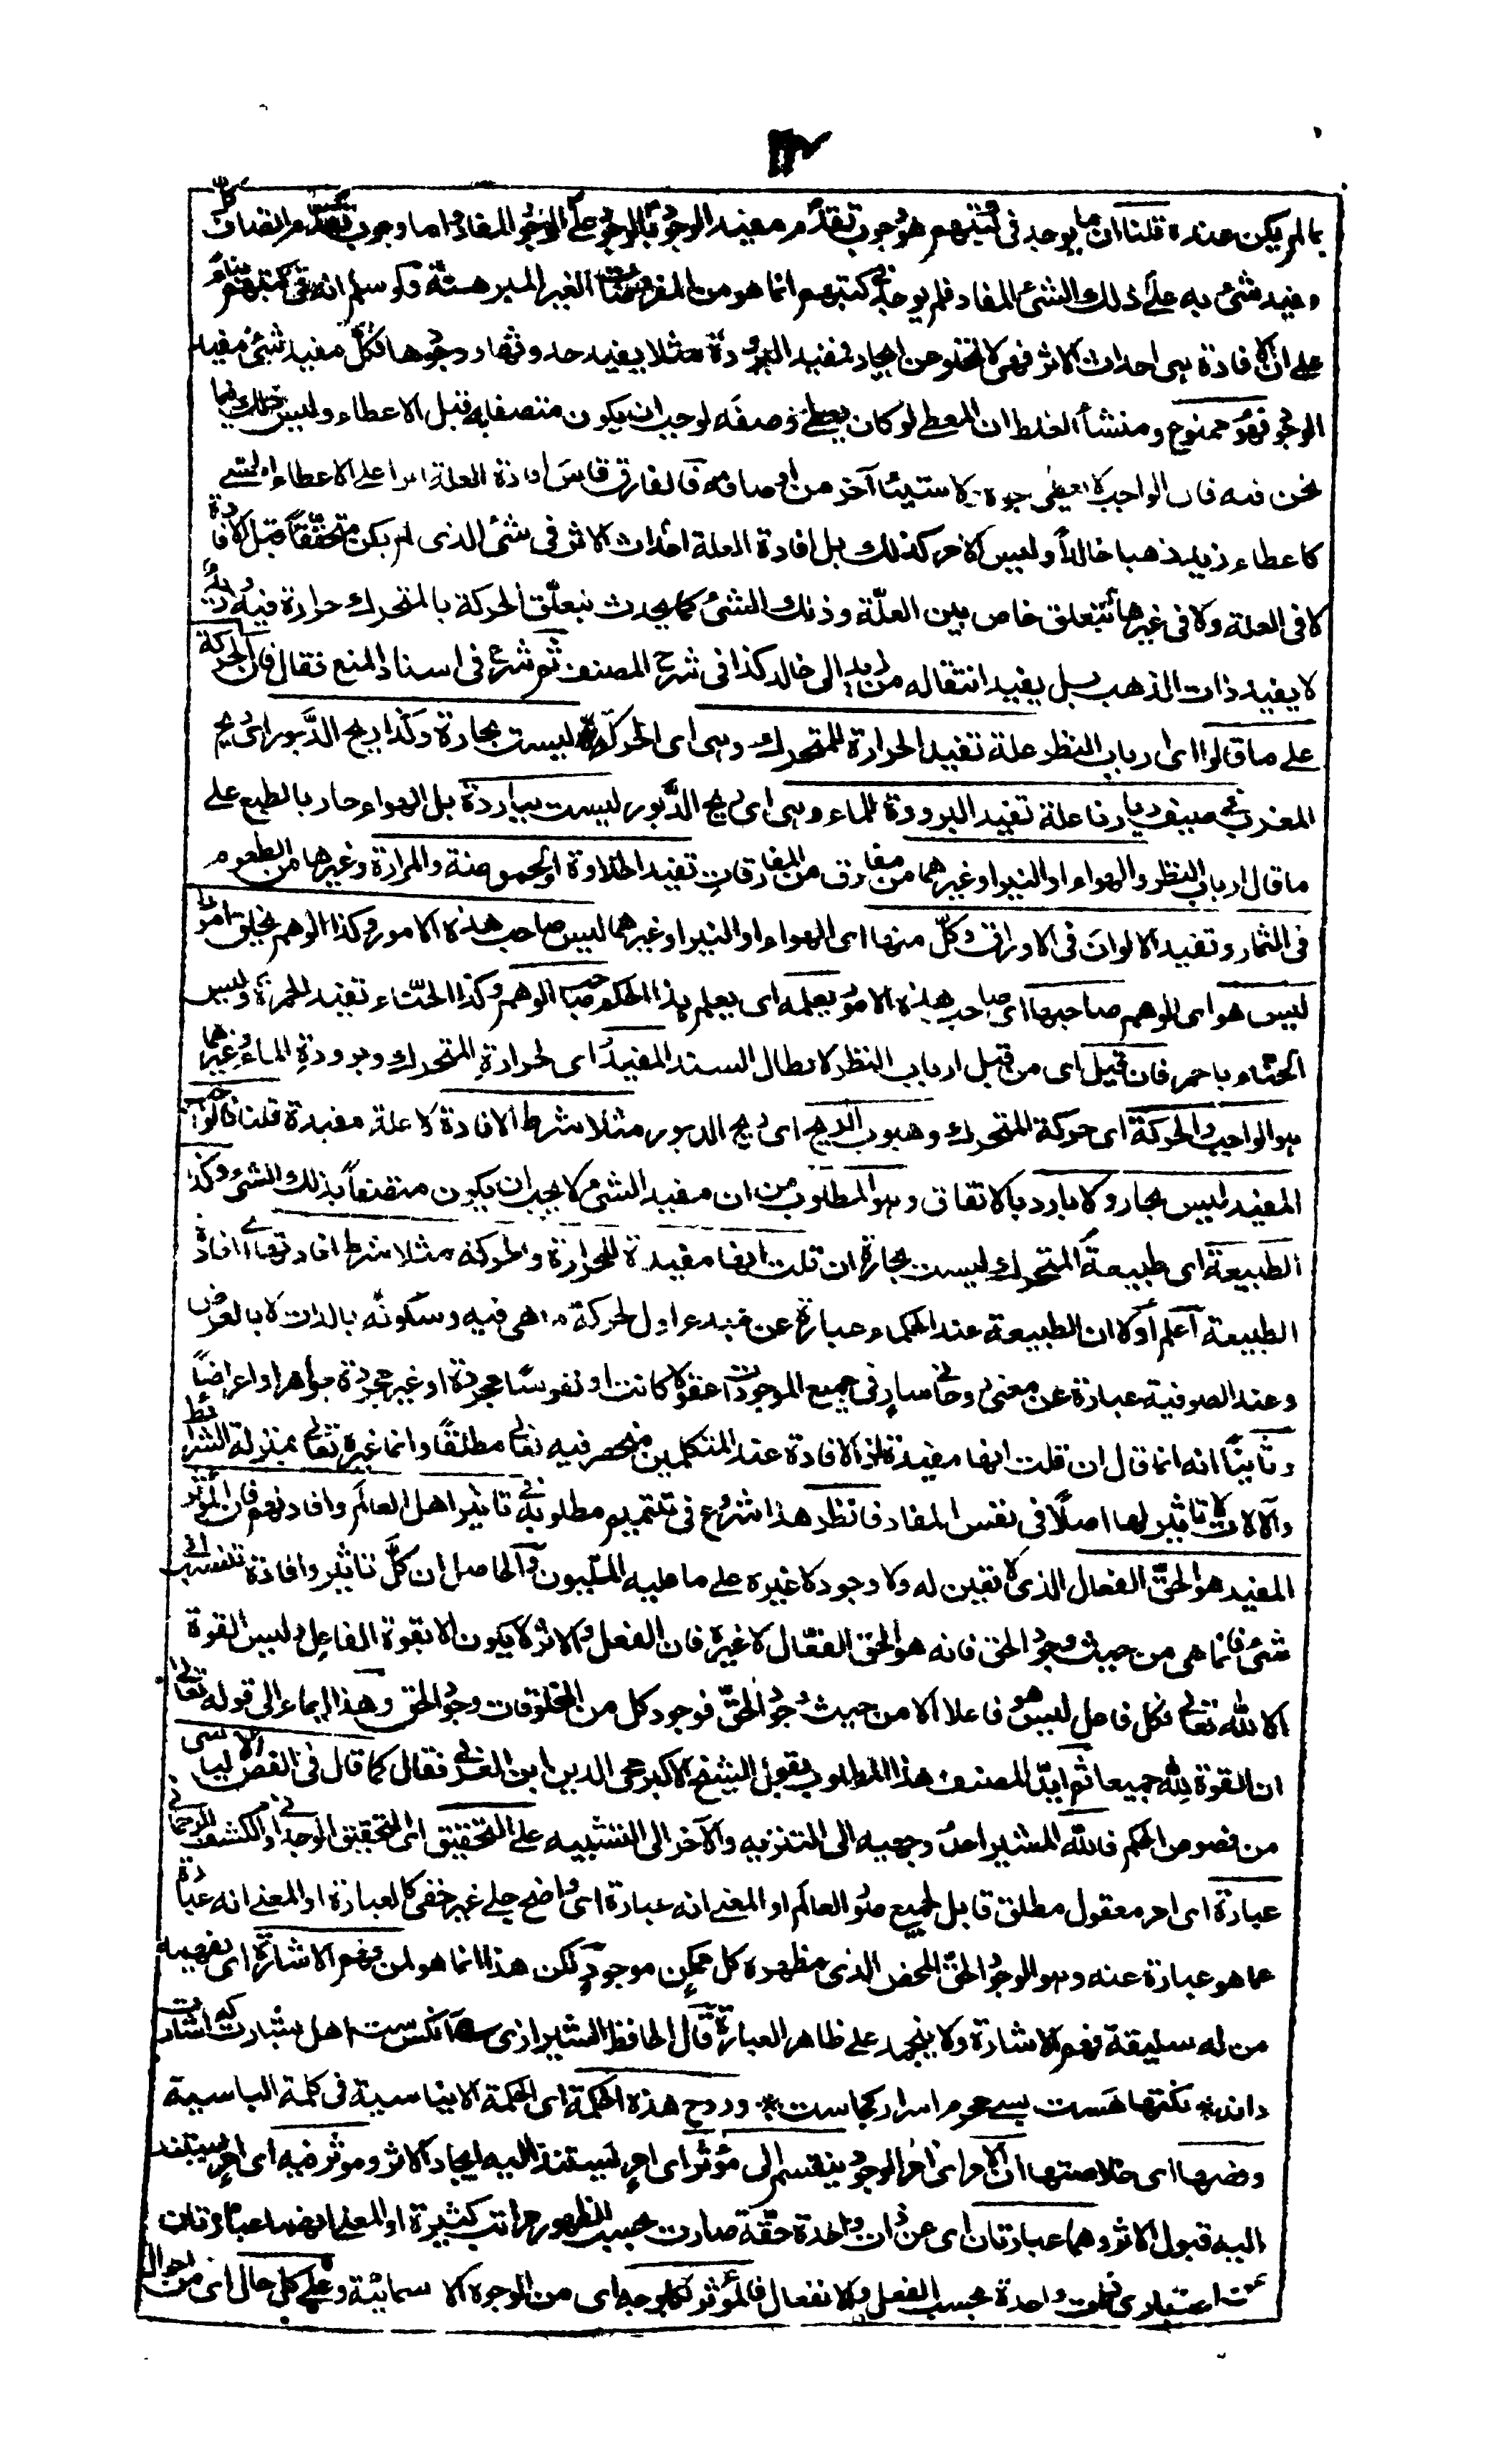 بما لم يكن عنده قلنا ان ما يوجد فى كتبهم هو وجوب تقدم مفيد الوجود بالوجود على الوجود المفاد اما وجوب تقدم اتصاف كل
مفيد شئ به على ذلك الشئ المفاد فلم يوجد فى كتبهم انما هو من المفروضات الغير المبرهنة ولو سلم انه فى كتبهم بناء
على ان الافادة هى احداث الاثر فهى لا تخلو عن ايجاد فمفيد البرودة مثلا يفيد حدوثها ووجودها فكل مفيد شئ مفيد
الوجود فهو ممنوع ومنشأ الغلط ان المعطى لو كان يعطى وصفه لوجب ان يكون متصفا به قبل الاعطاء وليس ذلك فيما
نحن فيه فان الواجب لا يعطى شيئا آخر من اوصافه فالفارق قاس افادة العلة اثرا على الاعطاء
كاعطاء زيد ذهبا خالدا وليس الامر كذلك بل افادة العلة احداث الاثر فى شئ الذى لم يكن متحققا قبل الافادة
لا فى العلة ولا فى غيرها بتعلق خاص بين العلة وذلك الشئ كما يحدث بتعلق الحركة بالمتحرك حرارة فيه وزيد
لا يفيد ذات الذهب بل يفيد انتقاله من زيد الى خالد كذا فى شرح المصنف ثم شرع فى اسناد المنع فقال فان الحركة
على ما قالوا اى ارباب النظر علة تفيد الحرارة للمتحرك وهى اى الحركة ليست بحارة وكذا ريح الدبور اى ريح
المغرب فى صيف ديارنا علة تفيد البرودة للماء وهى اى ريح الدبور ليست بباردة بل الهواء حار بالطبع على
ما قال ارباب النظر والهواء او النير او غيرهما من مفارق من المفارقات تفيد الحلاوة او الحموضة والمرارة وغيرها من الطعوم
فى الثمار وتفيد الالوان فى الاوراق وكل منها اى الهواء او النير او غيرهما ليس صاحب هذه الامور وكذا الوهم يخلق امورا
ليس هو اى الوهم صاحبها اى صاحب هذه الامور يعلمه اى يعلم هذا الحكم صاحب الوهم وكذا الحناء تفيد الحمرة وليس
الحناء باحمر فان قيل اى من قبل ارباب النظر لابطال السند المفيد اى لحرارة المتحرك وبرودة الماء وغيرهما
هو الواجب والحركة اى حركة المتحرك وهبوب الريح اى ريح الدبور مثلا شرط الافادة لا علة مفيدة قلنا فالواجب
المفيد ليس بحار ولا بارد بالاتفاق وهو المطلوب من ان مفيد الشئ لا يجب ان يكون متصفا بذلك الشئ وكذا
الطبيعة اى طبيعة المتحرك ليست بحارة ان قلت انها مفيدة للحرارة والحركة مثلا شرط افادتها اى افادة
الطبيعة اعلم اولا ان الطبيعة عند الحكماء عبارة عن مبدء اول لحركة ما هى فيه وسكونه بالذات لا بالعرض
وعند الصوفية عبارة عن معنى روحانى سار فى جميع الموجودات عقولا كانت او نفوسا مجردة او غير مجردة جواهر او اعراضا
وثانيا انه انما قال ان قلت انها مفيدة اذ الافادة عند المتكلمين منحصر فيه تعالى مطلقا وانما غيره تعالى بمنزلة الشرائط
والآلات لا تاثير لها اصلا فى نفس المفاد فانظر هذا شروع فى تتميم مطلوبه فى تاثير اهل العالم وافادتهم فان المؤثر
المفيد هو الحق الفعال الذى لا تعين له ولا وجود لا غيره على ما عليه المليون والحاصل ان كل تاثير وافادة تنسب الى
شئ فانما هى من حيث وجود الحق فانه هو الحق الفعال لا غيره فان الفعل والاثر لا يكون الا بقوة الفاعل وليس القوة
الا لله تعالى فكل فاعل ليس هو فاعلا الا من حيث وجود الحق فوجود كل من المخلوقات وجود الحق وهذا ايماء الى قوله تعالى
ان القوة لله جميعا ثم ايد المصنف هذا المطلوب بقول الشيخ الاكبر محى الدين ابن العربى فقال كما قال فى الفص الالياسى
من فصوص الحكم فالله المشير احد وجهيه الى التنزيه والآخر الى التشبيه على التحقيق اى التحقيق الوجدانى او الكشف الروحانى
عبارة اى امر معقول مطلق قابل لجميع صور العالم او المعنى انه عبارة اى واضح جلى غير خفى كالعبارة او المعنى انه عبارة
عما هو عبارة عنه وهو الوجود الحق المحض الذى مظهره كل ممكن موجود لكن هذا انما هو لمن فهم الاشارة اى يفهمه
من له سليقة فهم الاشارة ولا ينجمد على ظاهر العبارة قال الحافظ الشيرازى آنكس ست اهل بشارت كه اشارت
داند * نكتها هست بسے محرم اسرار كجاست * وروح هذه الحكمة اى الحكمة الايناسية فى كلمة الياسية
وفصها اى خلاصتها ان الامر اى امر الوجود ينقسم الى مؤثر اى امر يستند اليه ايجاد الاثر وموثر فيه اى امر يستند
اليه قبول الاثر وهما عبارتان اى عن ذات واحدة حقة صارت بحسب الظهور مراتب كثيرة او المعنى انهما عبارتان
عن اعتبارى ذات واحدة بحسب الفعل والانفعال فالمؤثر بكل وجه اى من الوجوه الاسمائية وعلى كل حال اى من احوال